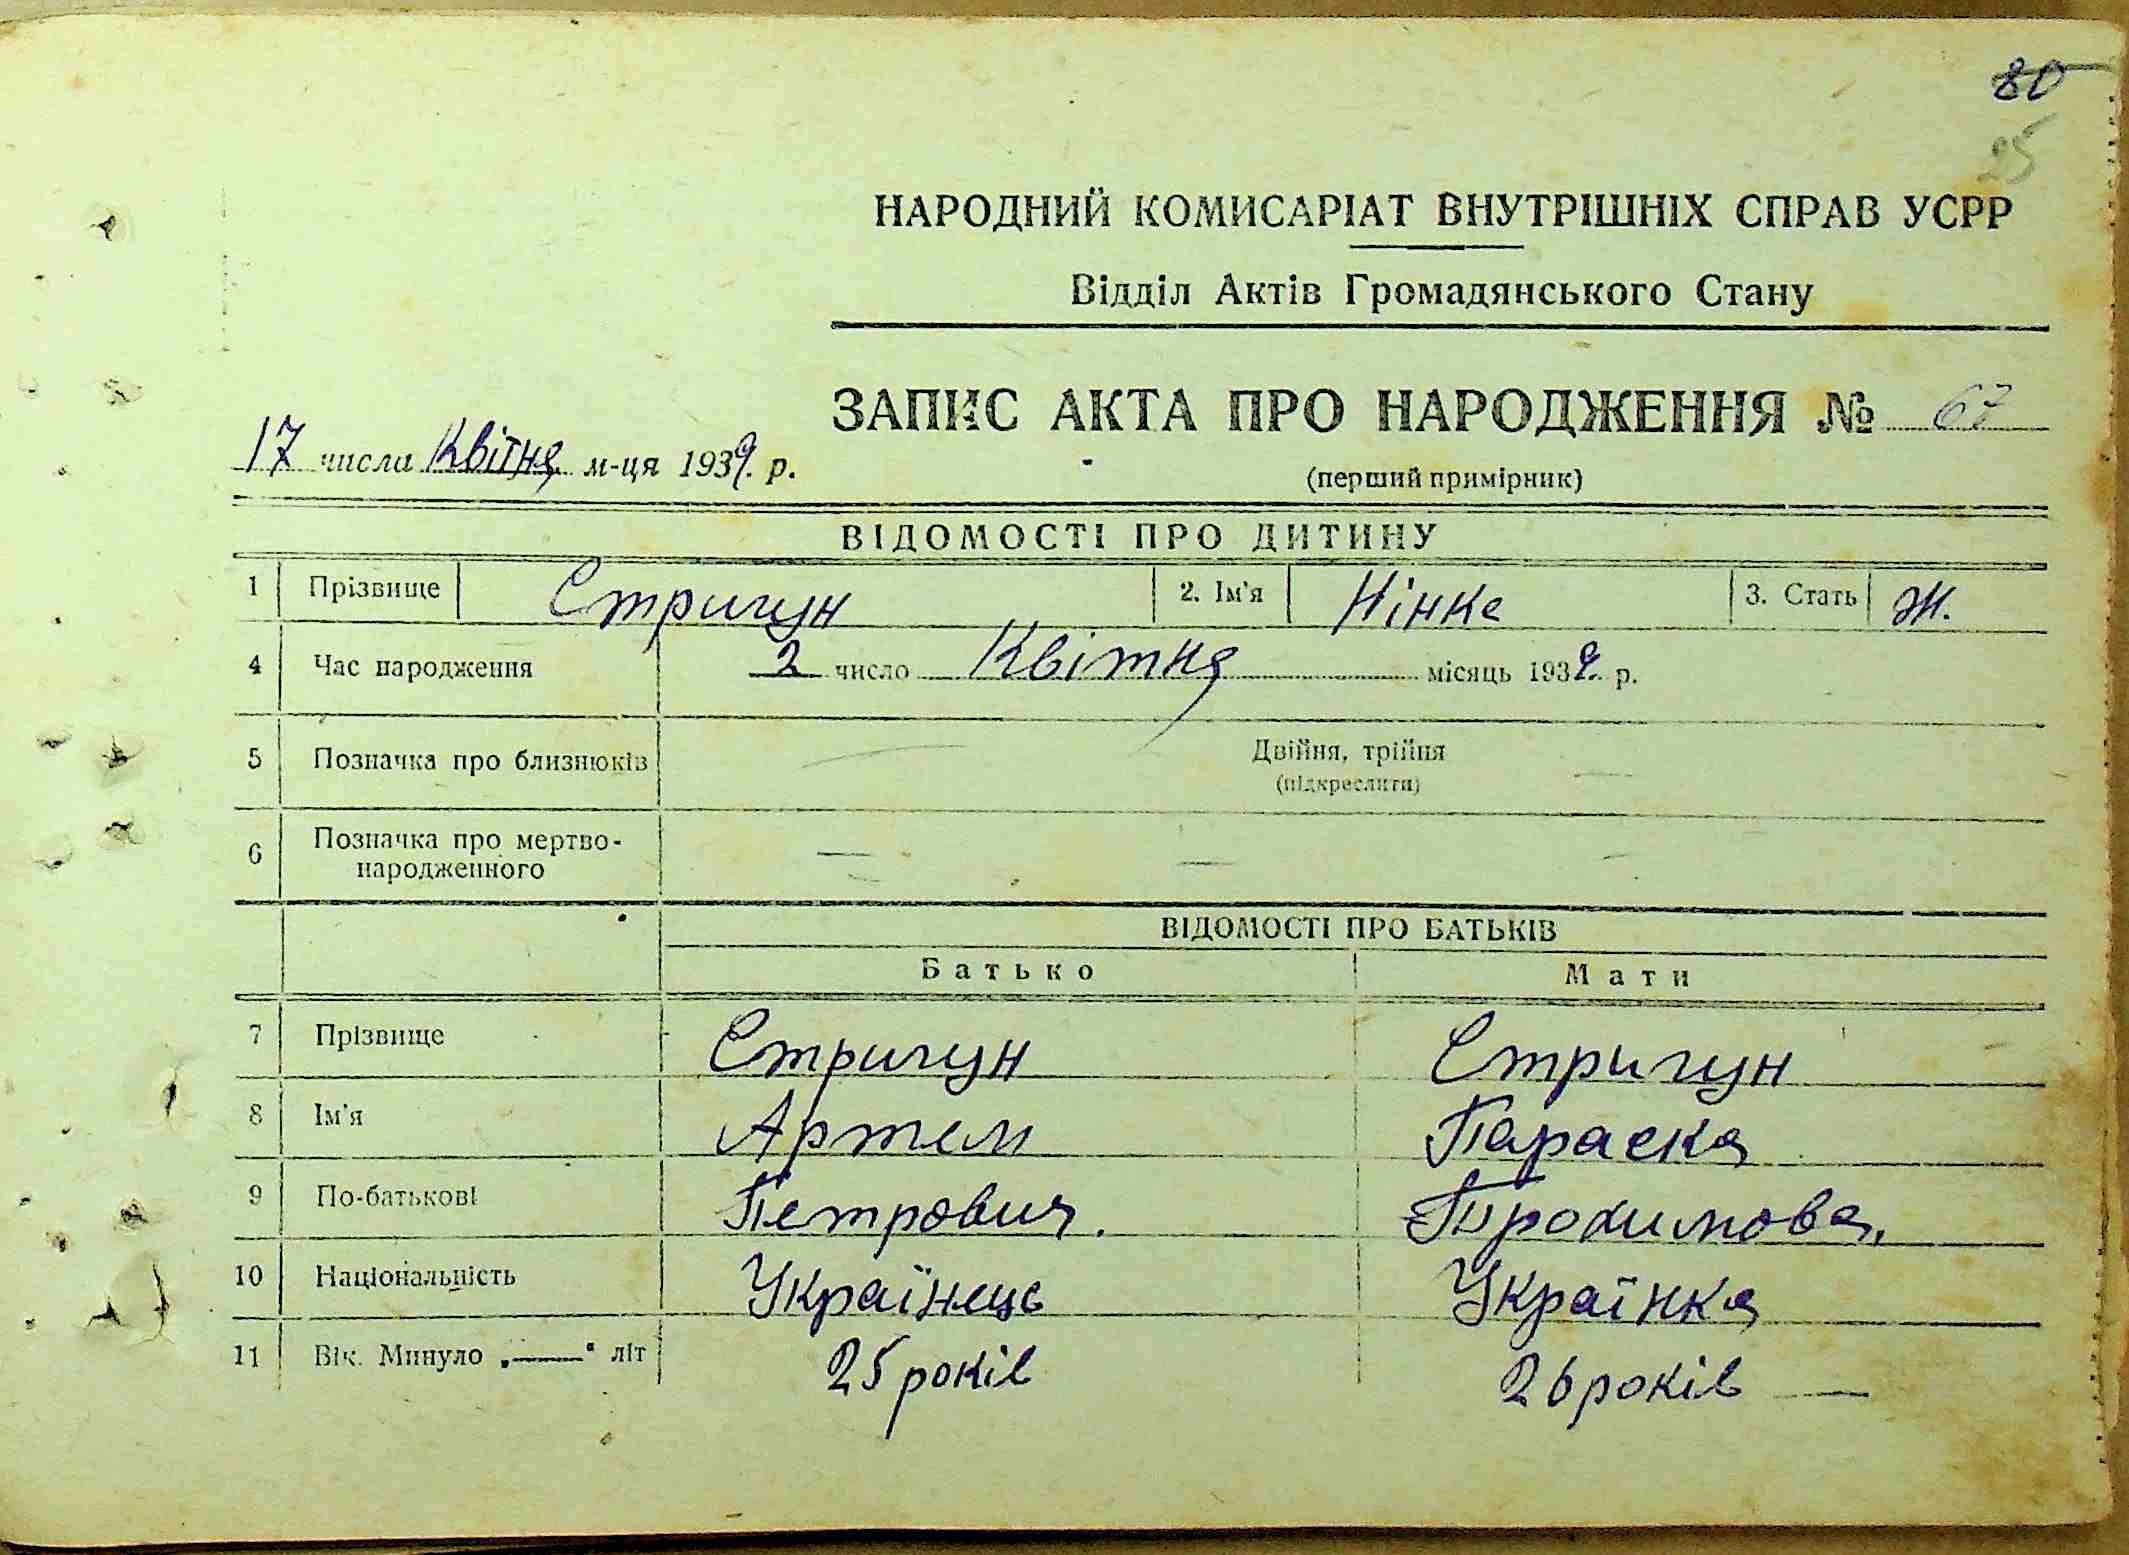 80
25
НАРОДНИЙ КОМИСАРІАТ ВНУТРІШНІХ СПРАВ УСРР
Відділ Актів Громадянського Стану
ЗАПИС АКТА ПРО НАРОДЖЕННЯ № 67
17 числа Квітня м-ця 1939. р.
(перший примірник)
ВІДОМОСТІ ПРО ДИТИНУ
1 Прізвище Стригун 2. Ім'я Нінка 3. Стать Ж.
4 Час народження 2 число Квітня місяць 1939. р.
5 Позначка про близнюків — Двійня, трійня —
(підкреслити)
6 Позначка про мертво-
народженного — — —
ВІДОМОСТІ ПРО БАТЬКІВ
Батько Мати
7 Прізвище Стригун Стригун
8 Ім'я Артем Параска
9 По-батькові Петрович. Трохимова.
10 Національність Українець Українка
11 Вік. Минуло „—" літ 25 років 26 років —